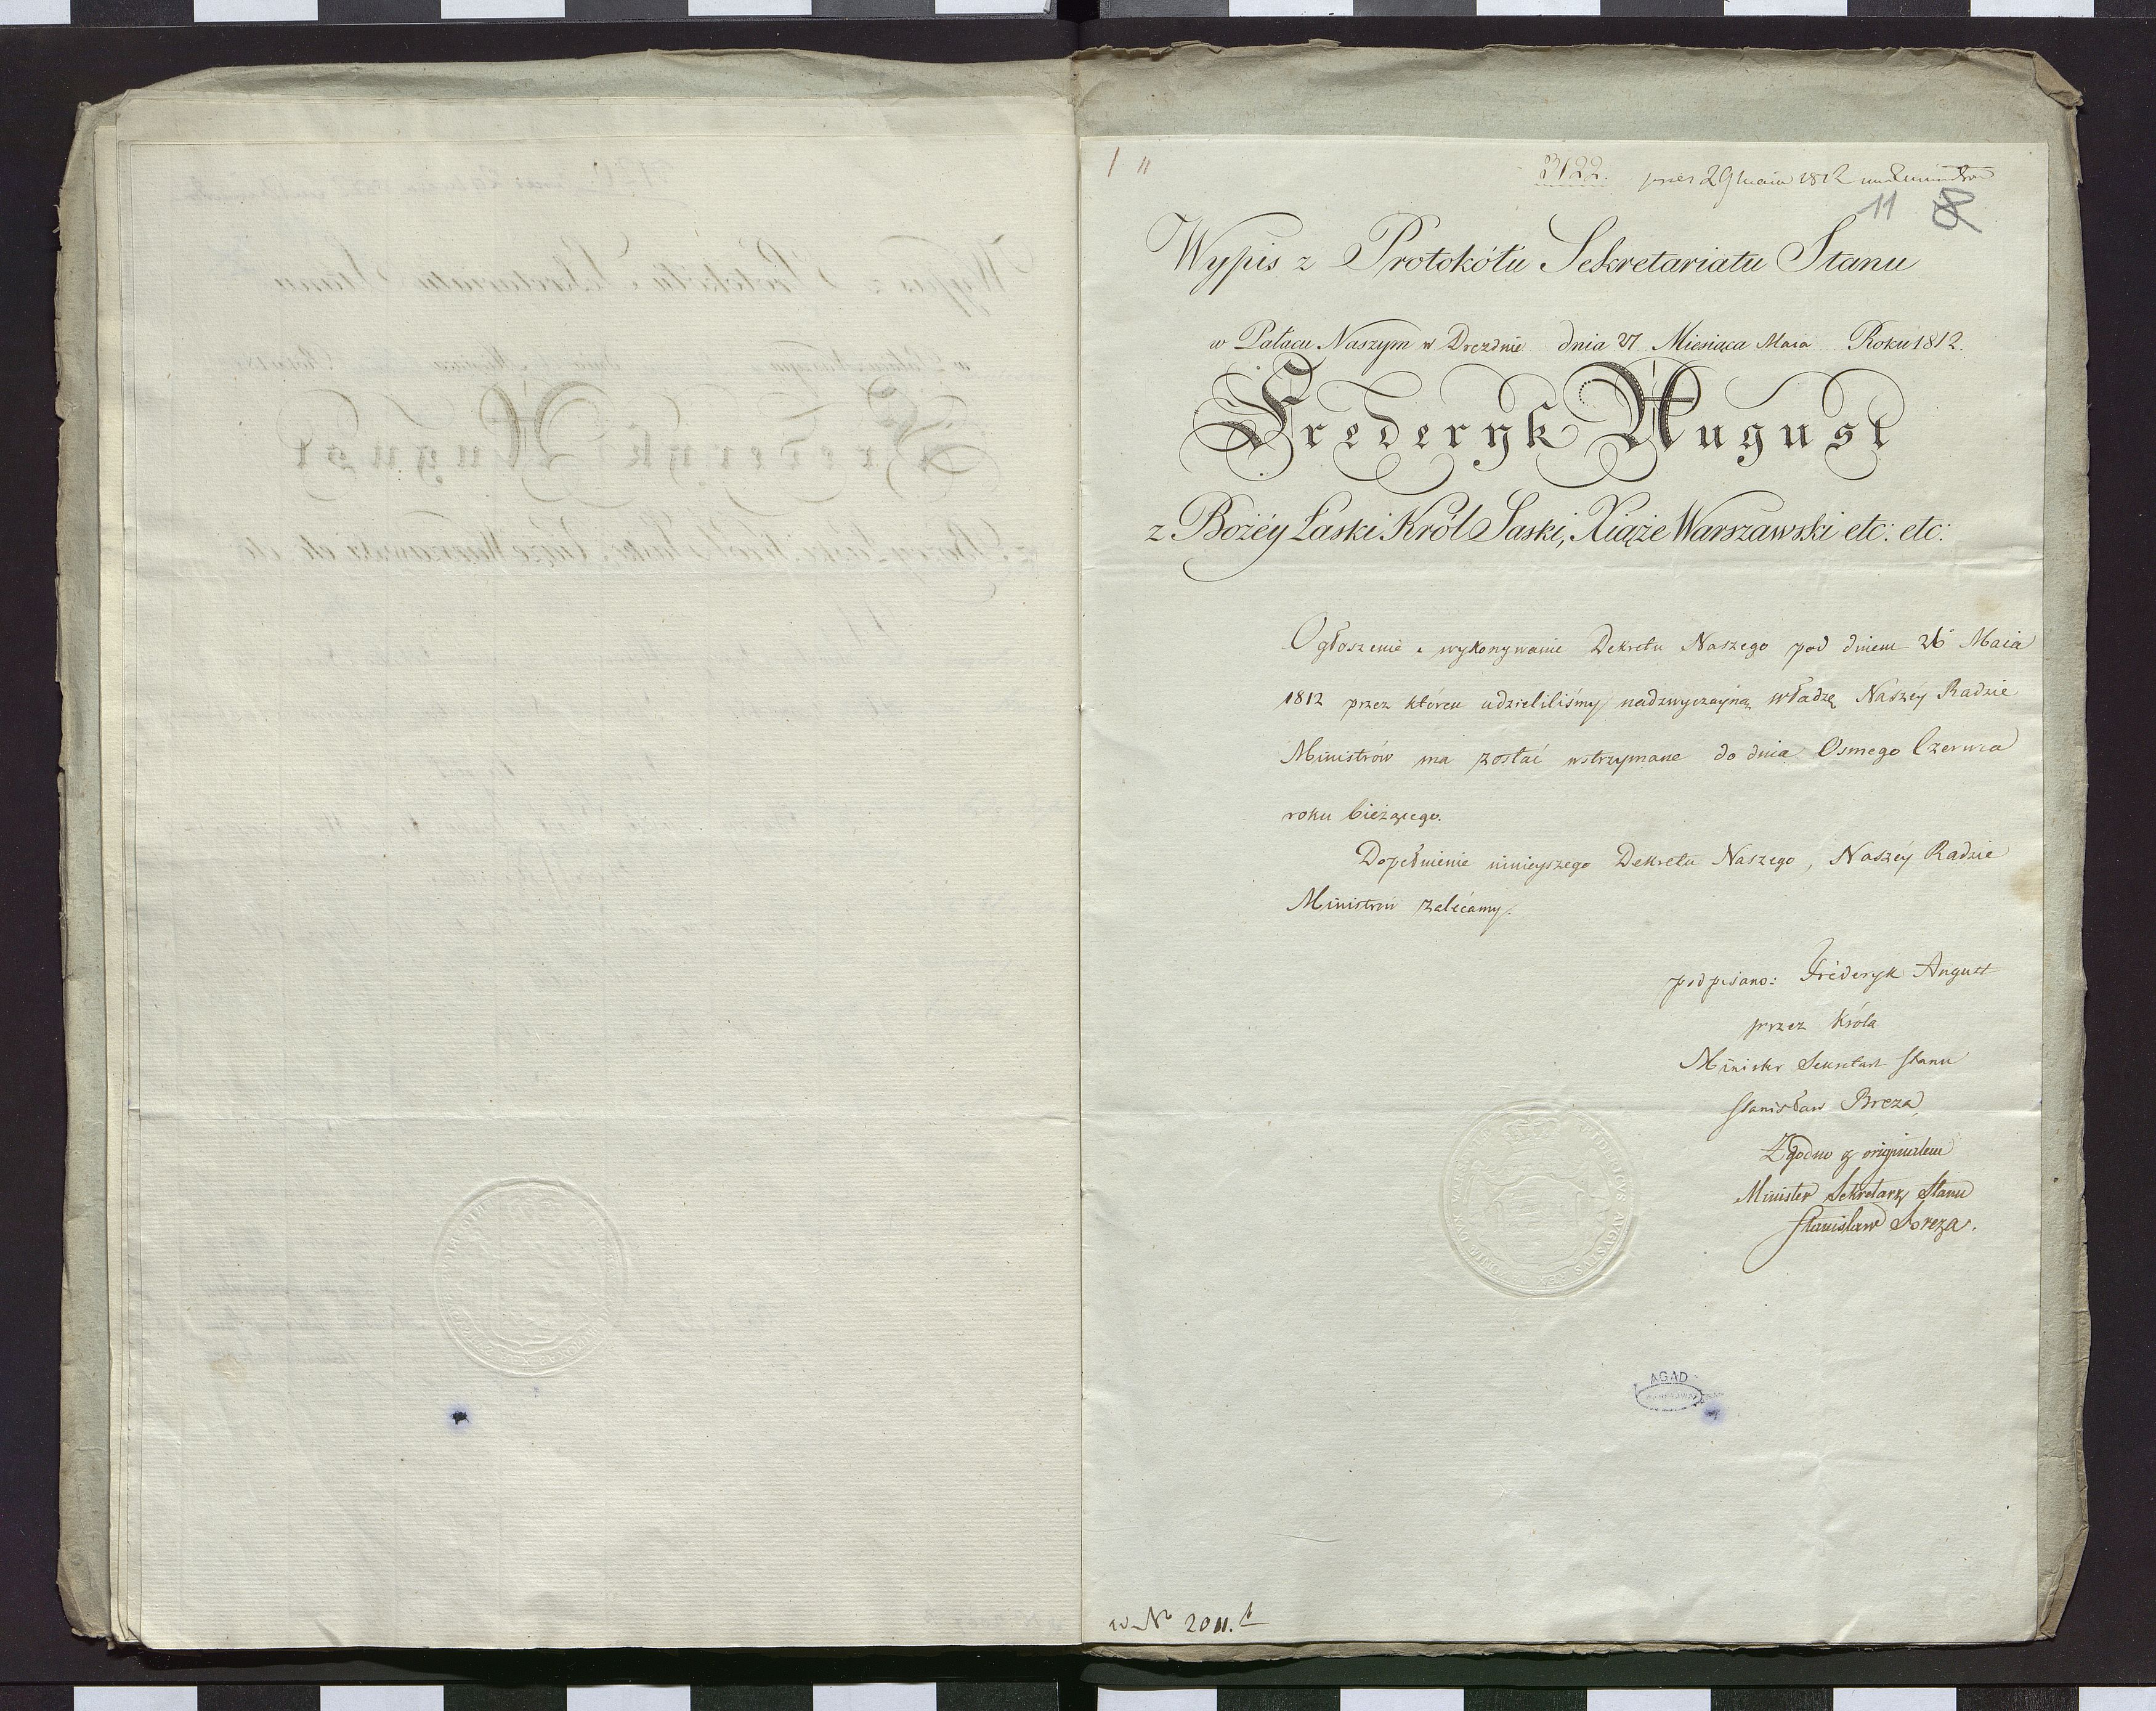 3122. 29 Maia 1812
11 8
Wypis z Protokółu Sekretariatu Stanu
w Pałacu Naszym w Dreznie dnia 27 Miesiąca Maia Roku 1812.
Frederyk August
z Bożéy Łaski Król Saski, Xiąże Warszawski etc: etc:
Ogłoszenie i wykonywanie Dekretu Naszego pod dniem 26 Maia
1812 przez któren udzieliliśmy nadzwyczayną władzę Naszéy Radzie
Ministrów ma zostać wstrzymane do dnia Osmego Czerwca
roku bieżącego.
Dopełnienie ninieyszego Dekretu Naszego, Naszéy Radzie
Ministrów zalecamy.
podpisano: Fréderyk August
przez Króla
Minister Sekretarz Stanu
Stanisław Breza
Zgodno z originałem
Minister Sekretarz Stanu
Stanisław Breza.
FRIDERICVS AVGVSTVS REX
AGAD
w No 2011.